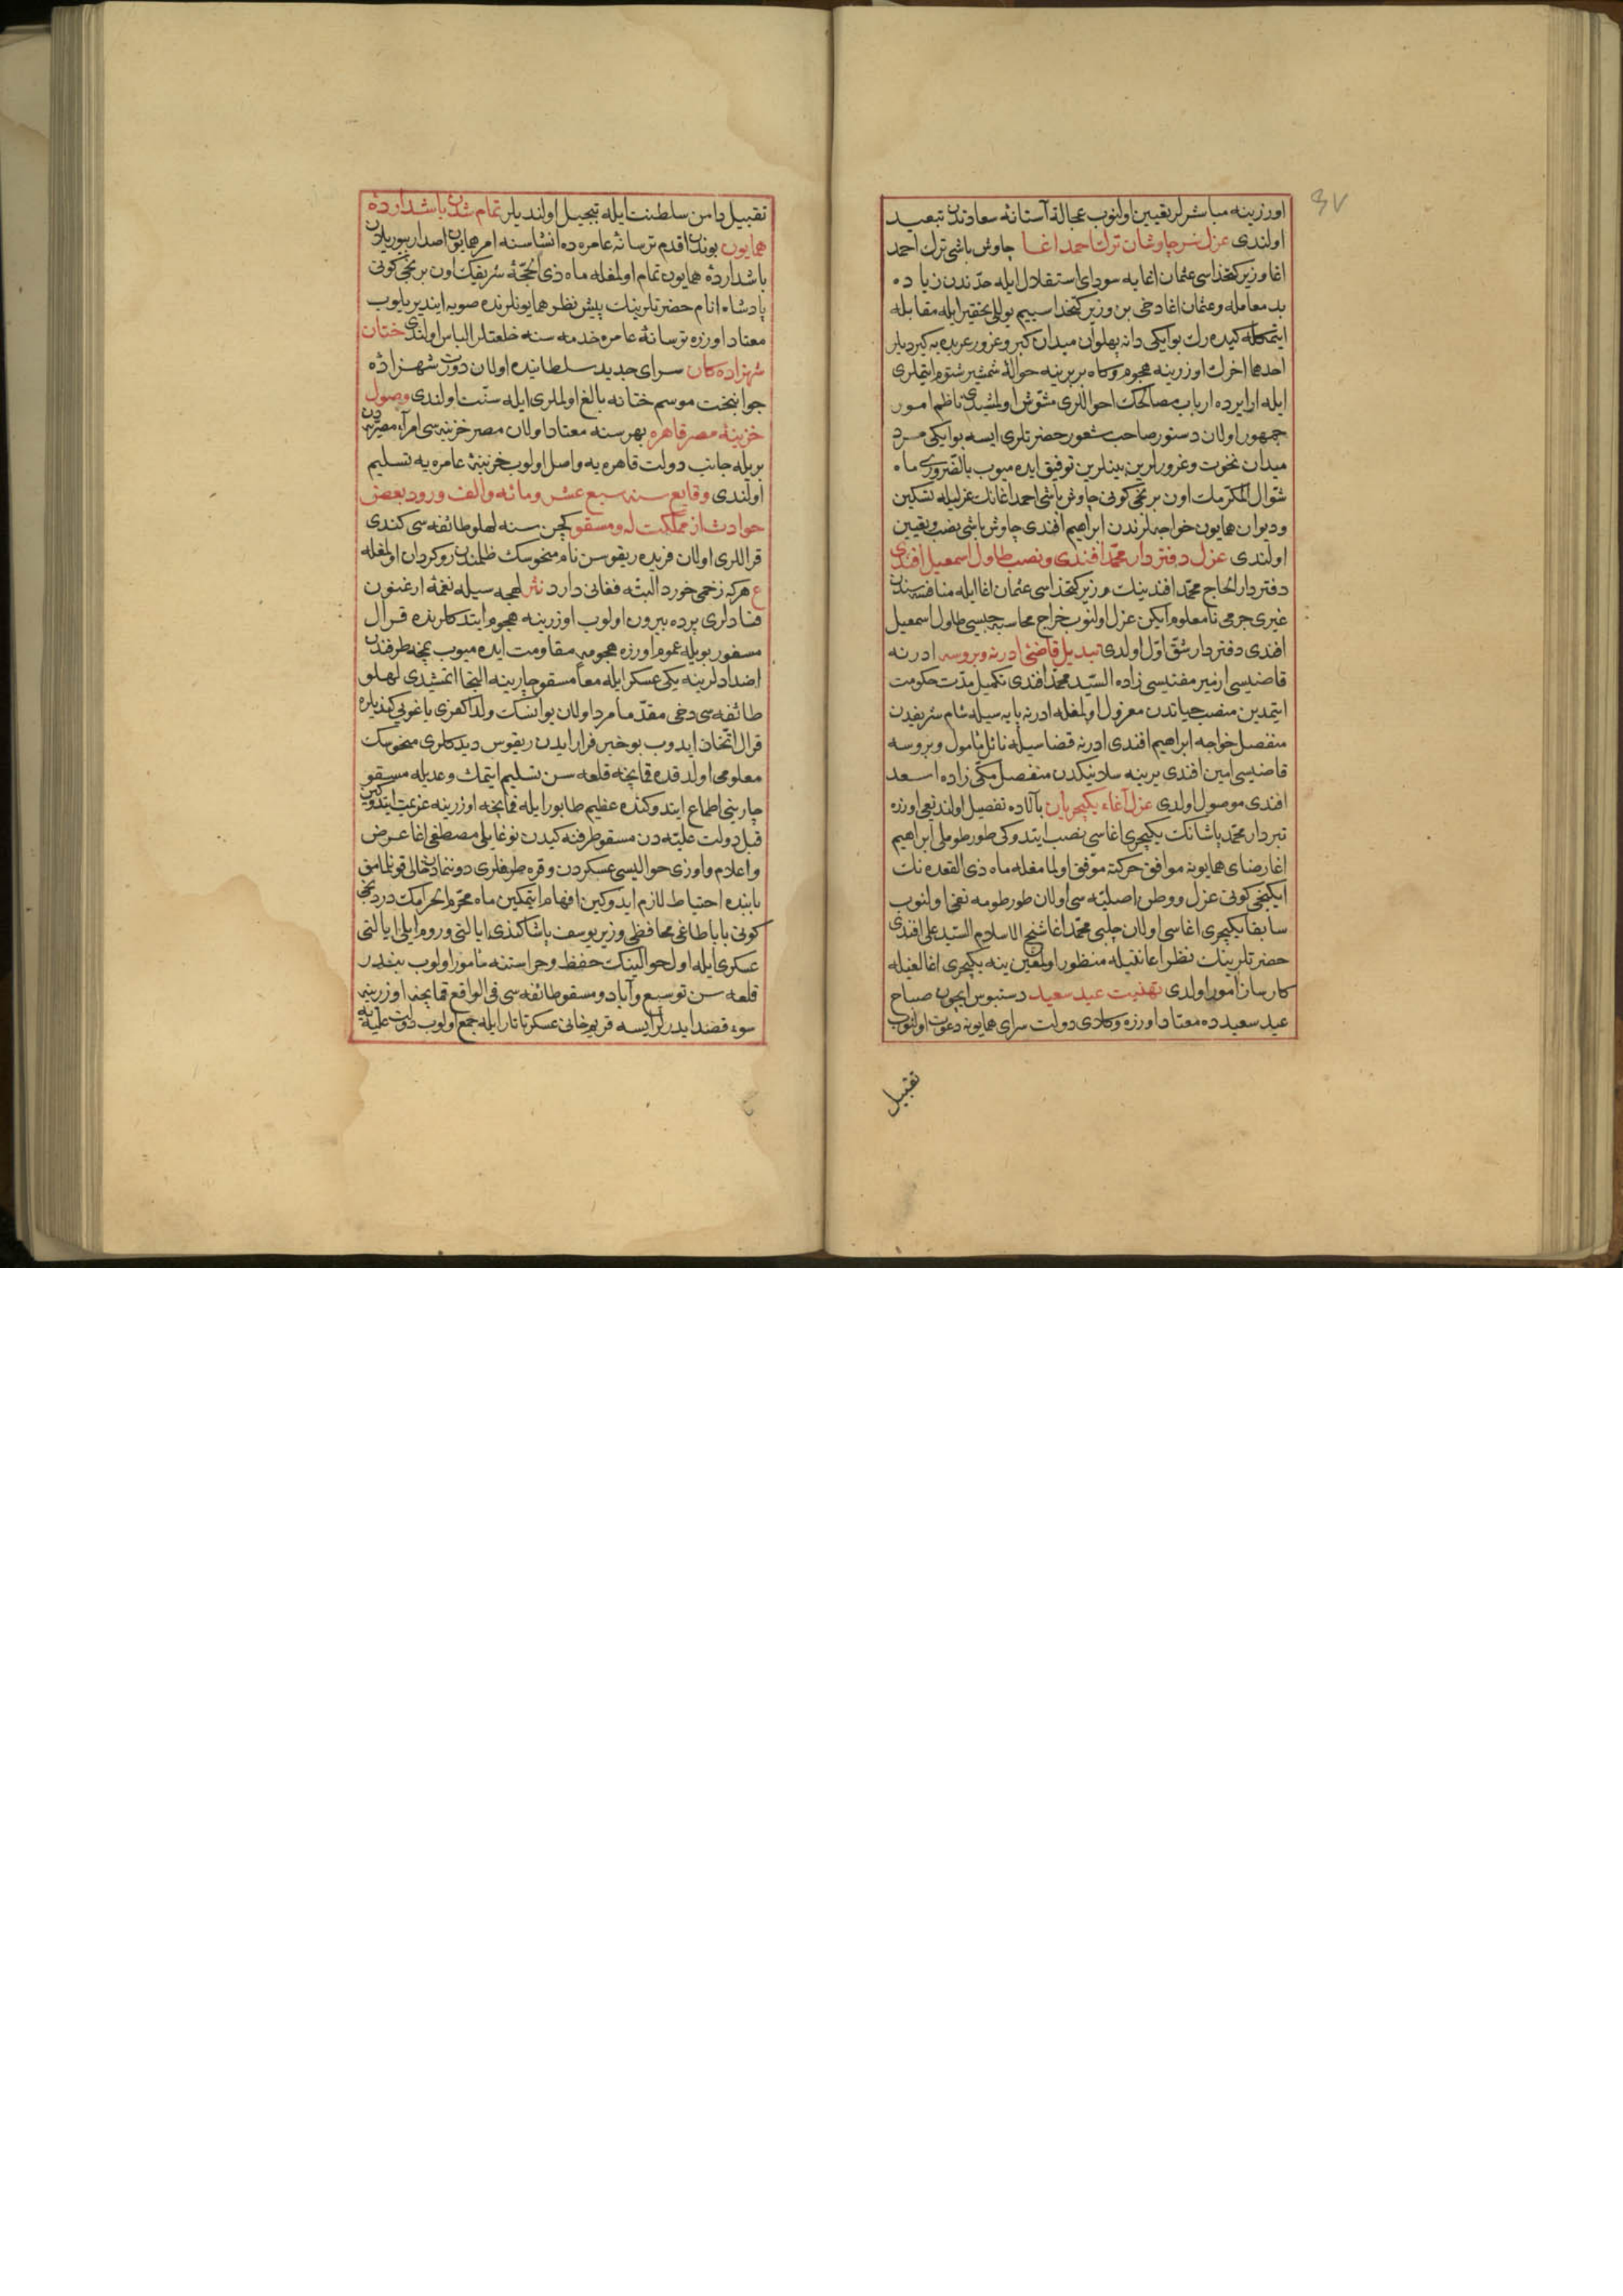 ٤٧
اوزرینه مباشرلر تعیین اولنوب عجالة آستانهٔ سعادتدن تبعید
اولندی عزل سر چاوشان ترك احمد اغا چاوش باشی ترك احمد
اغا وزیر كتخداسی عثمان اغایه سودای استقلال ایله حدّندن زیاده
بد معامله و عثمان اغا دخی بن وزیر كتخداسییم یوللی تحقیر ایله مقابله
ایتمكله كیده رك بو ایكی دانه پهلوان میدان كبر و غرور عربده یه كیردیلر
احدهما اخرك اوزرینه هجوم وكاه بربرینه حوالهٔ شمشیر شتوم ایتملری
ایله ارایرده ارباب مصالحك احواللری مشوّش اولمشیدی ناظم امور
جمهور اولان دستور صاحب شعور حضرتلری ایسه بو ایكی مرد
میدان نخوت و غرورلرین بینلرین توفیق ایده میوب بالضروری ماه
شوّال المكرّمك اون برنجی كونی چاوش باشی احمد اغانك عزلیله تسكین
و دیوان همایون خواجه لرندن ابراهیم افندی چاوش باشی نصب و تعیین
اولندی عزل دفتردار محمّد افندی و نصب طاول اسمعیل افندی
دفتردار الحاج محمّد افندینك وزیر كتخداسی عثمان اغا ایله منافسه سندن
غیری جرمی نامعلوم ایكن عزل اولنوب خراج محاسبه جیسی طاول اسمعیل
افندی دفتردار شقّ اوّل اولدی تبدیل قاضئ ادرنه و بروسه ادرنه
قاضیسی ازمیر مفتیسی زاده السیّد محمّد افندی تكمیل مدّت حكومت
ایتمدین منصب حیاتدن معزول اولمغله ادرنه پایه سیله شام شریفدن
منفصل خواجه ابراهیم افندی ادرنه قضاسیله نائل مأمول و بروسه
قاضیسی امین افندی یرینه سلانیكدن منفصل مكّی زاده اسعد
افندی موصول اولدی عزل آغاء یكیچریان بالاده تفصیل اولندیغی اوزره
تبردار محمّد پاشانك یكیچری اغاسی نصب ایتدوكی طورطوملی ابراهیم
اغا رضای همایونه موافق حركته موفّق اولمامغله ماه ذی القعده نك
ایكنجی كونی عزل و وطن اصلیّه سی اولان طورطومه نفی اولنوب
سابقا یكیچری اغاسی اولان چلبی محمّد اغا شیخ الاسلام السیّد علی افندی
حضرتلرینك نظر اعانتیله منظور اولمغین ینه یكیچری اغالغیله
كارساز امور اولدی تهنیت عید سعید دستبوس ایچون صباح
عید سعیدده معتاد اوزره وكلای دولت سرای همایونه دعوت اولنوب
تقبیل
تقبیل دامن سلطنت ایله تبجیل اولندیلر تمام شدن باشدارده
همایون بوندن اقدم ترسانهٔ عامره ده انشاسنه امر همایون اصدار بیوریلان
باشداردهٔ همایون تمام اولمغله ماه ذی الحجّهٔ شریفك اون برنجی كونی
پادشاه انام حضرتلرینك پیش نظر همایونلرنده صویه ایندیریلوب
معتاد اوزره ترسانهٔ عامره خدمه سنه خلعتلر الباس اولندی ختان
شهزاده كان سرای جدید سلطانیده اولان دورت شهزادهٔ
جوانبخت موسم ختانه بالغ اولملری ایله سنّت اولندی وصول
خزینهٔ مصر قاهره بهر سنه معتاد اولان مصر خزینه سی امرآء مصریّه دن
بریله جانب دولت قاهره یه واصل اولوب خزینهٔ عامره یه تسلیم
اولندی وقایع سنه سبع عشر و مائه و الف ورود بعض
حوادث از مملكت له و مسقو كچن سنه لهلو طائفه سی كندی
قراللری اولان فریده ریقوس نام منحوسك ظلمندن روكردان اولمغله
ع هركه زخمی خورد البتّه فغانی دارد نثر لهجه سیله نغمهٔ ارغنون
فسادلری پرده بیرون اولوب اوزرینه هجوم ایتدكلرنده قرال
مسفور بویله عموم اوزره هجومه مقاومت ایده میوب نمچه طرفندن
اضدادلرینه یكی عسكر ایله معا مسقو چارینه التجا ایتمشیدی لهلو
طائفه سی دخی مقدّما مرد اولان یوانسك ولد اكفری یاغوبی كندیلره
قرال اتّخاذ ایدوب بو خبر فرار ایدن ریقوس دیدكلری منحوسك
معلومی اولدقده قمانچه قلعه سن تسلیم ایتمك وعدیله مسقو
چارینی اطماع ایتدوكنده عظیم طابور ایله قمانچه اوزرینه عزیمت ایتدوكین
قبل دولت علیّه دن مسقو طرفنه كیدن نوغایلی مصطفی اغا عرض
و اعلام و اوزی حوالیسی عسكردن و قره طرفلری دوننمادن خالی قونلمامق
بابنده احتیاط لازم ایدوكین افهام ایتمكین ماه محرّم الحرامك دردنجی
كونی باباطاغی محافظی وزیر یوسف پاشا كندی ایالتی و روم ایلی ایالتی
عسكری ایله اول حوالینك حفظ و حراستنه مأمور اولوب بندر
قلعه سن توسیع و آباد و مسقو طائفه سی فی الواقع قمانچه اوزرینه
سوء قصد ایدرلر ایسه قریم خانی عسكر تاتار ایله جمع اولوب دولت علیّه یه